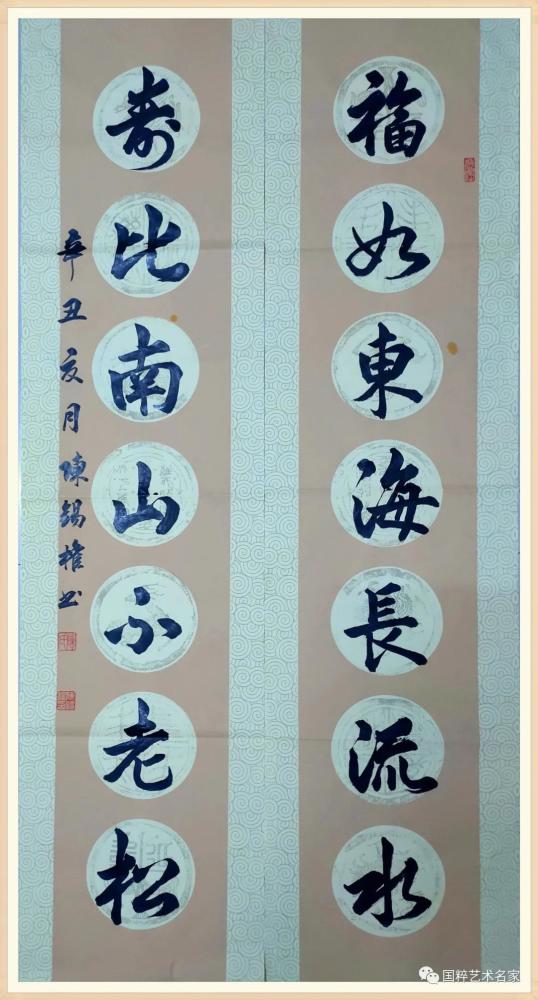 福如東海長流水
寿比南山不老松
辛丑亥月陳錫權书
国粹艺术名家